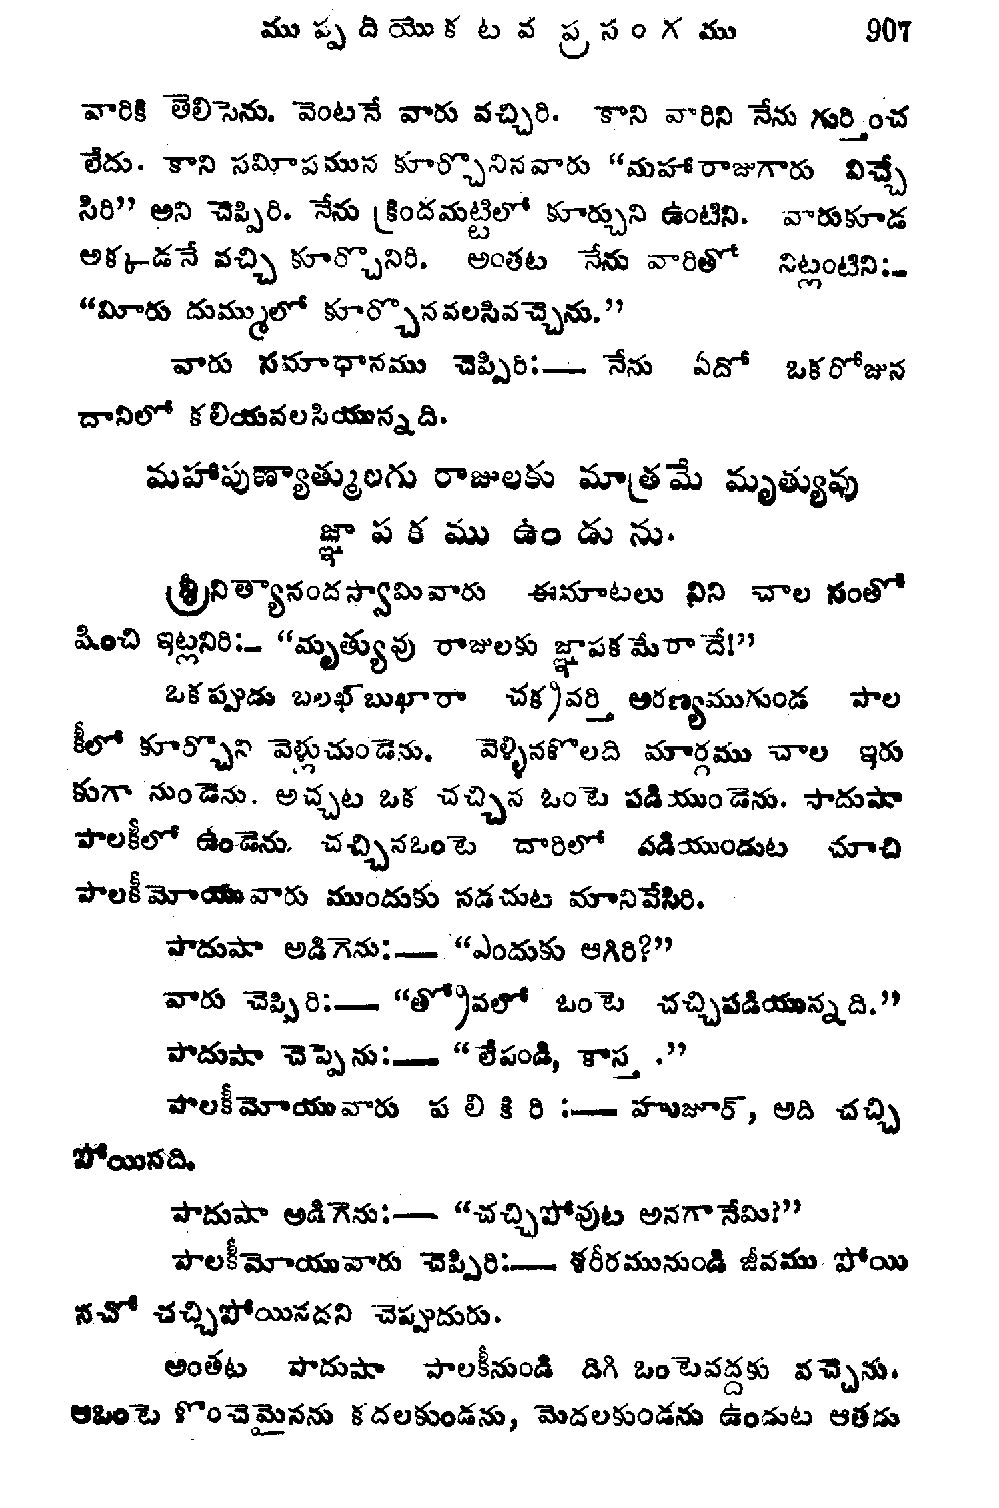 ముప్పదియొకటవ ప్రసంగము 907
వారికి తెలిసెను. వెంటనే వారు వచ్చిరి. కాని వారిని నేను గుర్తించ
లేదు. కాని సమీపమున కూర్చొనినవారు “మహారాజుగారు విచ్చే
సిరి” అని చెప్పిరి. నేను క్రిందమట్టిలో కూర్చుని ఉంటిని. వారుకూడ
అక్కడనే వచ్చి కూర్చొనిరి. అంతట నేను వారితో నిట్లంటిని:—
“మీరు దుమ్ములో కూర్చొనవలసివచ్చెను.”
వారు సమాధానము చెప్పిరి:— నేను ఏదో ఒకరోజున
దానిలో కలియవలసియున్నది.
మహాపుణ్యాత్ములగు రాజులకు మాత్రమే మృత్యువు
జ్ఞాపకము ఉండును.
శ్రీనిత్యానందస్వామివారు ఈమాటలు విని చాల సంతో
షించి ఇట్లనిరి:— “మృత్యువు రాజులకు జ్ఞాపకమేరాదే!”
ఒకప్పుడు బలఖ్‌బుఖారా చక్రవర్తి అరణ్యముగుండ పాల
కీలో కూర్చొని వెళ్లుచుండెను. వెళ్ళినకొలది మార్గము చాల ఇరు
కుగా నుండెను. అచ్చట ఒక చచ్చిన ఒంటె పడియుండెను. పాదుషా
పాలకీలో ఉండెను. చచ్చినఒంటె దారిలో పడియుండుట చూచి
పాలకీమోయువారు ముందుకు నడచుట మానివేసిరి.
పాదుషా అడిగెను:— “ఎందుకు ఆగిరి?”
వారు చెప్పిరి:— “త్రోవలో ఒంటె చచ్చిపడియున్నది.”
పాదుషా చెప్పెను:— “లేపండి, కాస్త.”
పాలకీమోయువారు పలికిరి:— హుజూర్, అది చచ్చి
పోయినది.
పాదుషా అడిగెను:— “చచ్చిపోవుట అనగానేమి?”
పాలకీమోయువారు చెప్పిరి:— శరీరమునుండి జీవము పోయి
నచో చచ్చిపోయినదని చెప్పుదురు.
అంతట పాదుషా పాలకీనుండి డిగి ఒంటెవద్దకు వచ్చెను.
ఆఒంటె కొంచెమైనను కదలకుండను, మెదలకుండను ఉండుట ఆతడు